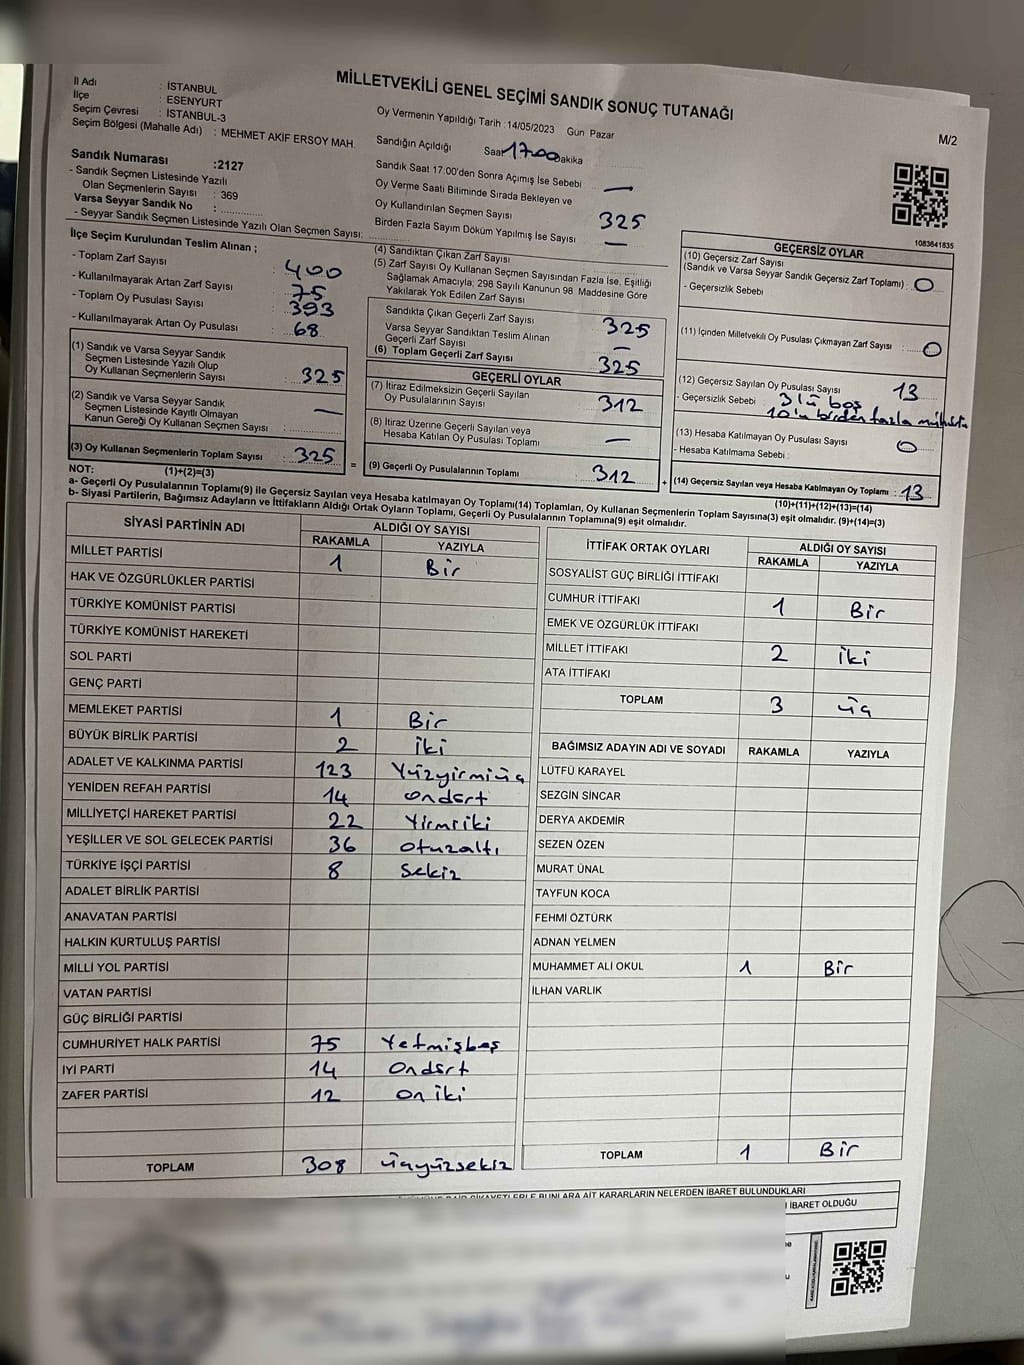 MİLLETVEKİLİ GENEL SEÇİMİ SANDIK SONUÇ TUTANAĞI
M/2
İl Adı : İSTANBUL
İlçe : ESENYURT
Seçim Çevresi : İSTANBUL-3
Seçim Bölgesi (Mahalle Adı) : MEHMET AKİF ERSOY MAH.
Sandık Numarası :2127
- Sandık Seçmen Listesinde Yazılı
Olan Seçmenlerin Sayısı : 369
Varsa Seyyar Sandık No : ..............
- Seyyar Sandık Seçmen Listesinde Yazılı Olan Seçmen Sayısı: ..............
Oy Vermenin Yapıldığı Tarih :14/05/2023 Gün Pazar
Sandığın Açıldığı Saat 17:00 Dakika
Sandık Saat 17:00'den Sonra Açımış İse Sebebi —
Oy Verme Saati Bitiminde Sırada Bekleyen ve
Oy Kullandırılan Seçmen Sayısı 325
Birden Fazla Sayım Döküm Yapılmış İse Sayısı —
1083641835
İlçe Seçim Kurulundan Teslim Alınan ;
- Toplam Zarf Sayısı : 400
- Kullanılmayarak Artan Zarf Sayısı : 75
- Toplam Oy Pusulası Sayısı : 393
- Kullanılmayarak Artan Oy Pusulası : 68
(1) Sandık ve Varsa Seyyar Sandık
Seçmen Listesinde Yazılı Olup
Oy Kullanan Seçmenlerin Sayısı : 325
(2) Sandık ve Varsa Seyyar Sandık
Seçmen Listesinde Kayıtlı Olmayan
Kanun Gereği Oy Kullanan Seçmen Sayısı : —
(3) Oy Kullanan Seçmenlerin Toplam Sayısı : 325
(4) Sandıktan Çıkan Zarf Sayısı
(5) Zarf Sayısı Oy Kullanan Seçmen Sayısından Fazla İse, Eşitliği
Sağlamak Amacıyla; 298 Sayılı Kanunun 98 Maddesine Göre
Yakılarak Yok Edilen Zarf Sayısı
Sandıkta Çıkan Geçerli Zarf Sayısı 325
Varsa Seyyar Sandıktan Teslim Alınan
Geçerli Zarf Sayısı —
(6) Toplam Geçerli Zarf Sayısı 325
GEÇERLİ OYLAR
(7) İtiraz Edilmeksizin Geçerli Sayılan
Oy Pusulalarının Sayısı 312
(8) İtiraz Üzerine Geçerli Sayılan veya
Hesaba Katılan Oy Pusulası Toplamı —
= (9) Geçerli Oy Pusulalarının Toplamı 312
GEÇERSİZ OYLAR
(10) Geçersiz Zarf Sayısı
(Sandık ve Varsa Seyyar Sandık Geçersiz Zarf Toplamı) : 0
- Geçersizlik Sebebi
(11) İçinden Milletvekili Oy Pusulası Çıkmayan Zarf Sayısı : 0
(12) Geçersiz Sayılan Oy Pusulası Sayısı 13
- Geçersizlik Sebebi : 3'ü boş
10'u birden fazla mühürlü
(13) Hesaba Katılmayan Oy Pusulası Sayısı 0
- Hesaba Katılmama Sebebi
+ (14) Geçersiz Sayılan veya Hesaba Katılmayan Oy Toplamı : 13
NOT: (1)+(2)=(3)
(10)+(11)+(12)+(13)=(14)
a- Geçerli Oy Pusulalarının Toplamı(9) ile Geçersiz Sayılan veya Hesaba katılmayan Oy Toplamı(14) Toplamları, Oy Kullanan Seçmenlerin Toplam Sayısına(3) eşit olmalıdır. (9)+(14)=(3)
b- Siyasi Partilerin, Bağımsız Adayların ve İttifakların Aldığı Ortak Oyların Toplamı, Geçerli Oy Pusulalarının Toplamına(9) eşit olmalıdır.
SİYASİ PARTİNİN ADI ALDIĞI OY SAYISI
RAKAMLA YAZIYLA
MİLLET PARTİSİ 1 Bir
HAK VE ÖZGÜRLÜKLER PARTİSİ
TÜRKİYE KOMÜNİST PARTİSİ
TÜRKİYE KOMÜNİST HAREKETİ
SOL PARTİ
GENÇ PARTİ
MEMLEKET PARTİSİ 1 Bir
BÜYÜK BİRLİK PARTİSİ 2 iki
ADALET VE KALKINMA PARTİSİ 123 Yüzyirmiüç
YENİDEN REFAH PARTİSİ 14 ondört
MİLLİYETÇİ HAREKET PARTİSİ 22 Yirmiiki
YEŞİLLER VE SOL GELECEK PARTİSİ 36 otuzaltı
TÜRKİYE İŞÇİ PARTİSİ 8 Sekiz
ADALET BİRLİK PARTİSİ
ANAVATAN PARTİSİ
HALKIN KURTULUŞ PARTİSİ
MİLLİ YOL PARTİSİ
VATAN PARTİSİ
GÜÇ BİRLİĞİ PARTİSİ
CUMHURİYET HALK PARTİSİ 75 Yetmişbeş
İYİ PARTİ 14 Ondört
ZAFER PARTİSİ 12 on iki
TOPLAM 308 üçyüzsekiz
İTTİFAK ORTAK OYLARI ALDIĞI OY SAYISI
RAKAMLA YAZIYLA
SOSYALİST GÜÇ BİRLİĞİ İTTİFAKI
CUMHUR İTTİFAKI 1 Bir
EMEK VE ÖZGÜRLÜK İTTİFAKI
MİLLET İTTİFAKI 2 iki
ATA İTTİFAKI
TOPLAM 3 üç
BAĞIMSIZ ADAYIN ADI VE SOYADI RAKAMLA YAZIYLA
LÜTFÜ KARAYEL
SEZGİN SİNCAR
DERYA AKDEMİR
SEZEN ÖZEN
MURAT ÜNAL
TAYFUN KOCA
FEHMİ ÖZTÜRK
ADNAN YELMEN
MUHAMMET ALİ OKUL 1 Bir
İLHAN VARLIK
TOPLAM 1 Bir
BUNLARA AİT KARARLARIN NELERDEN İBARET BULUNDUKLARI
İBARET OLDUĞU